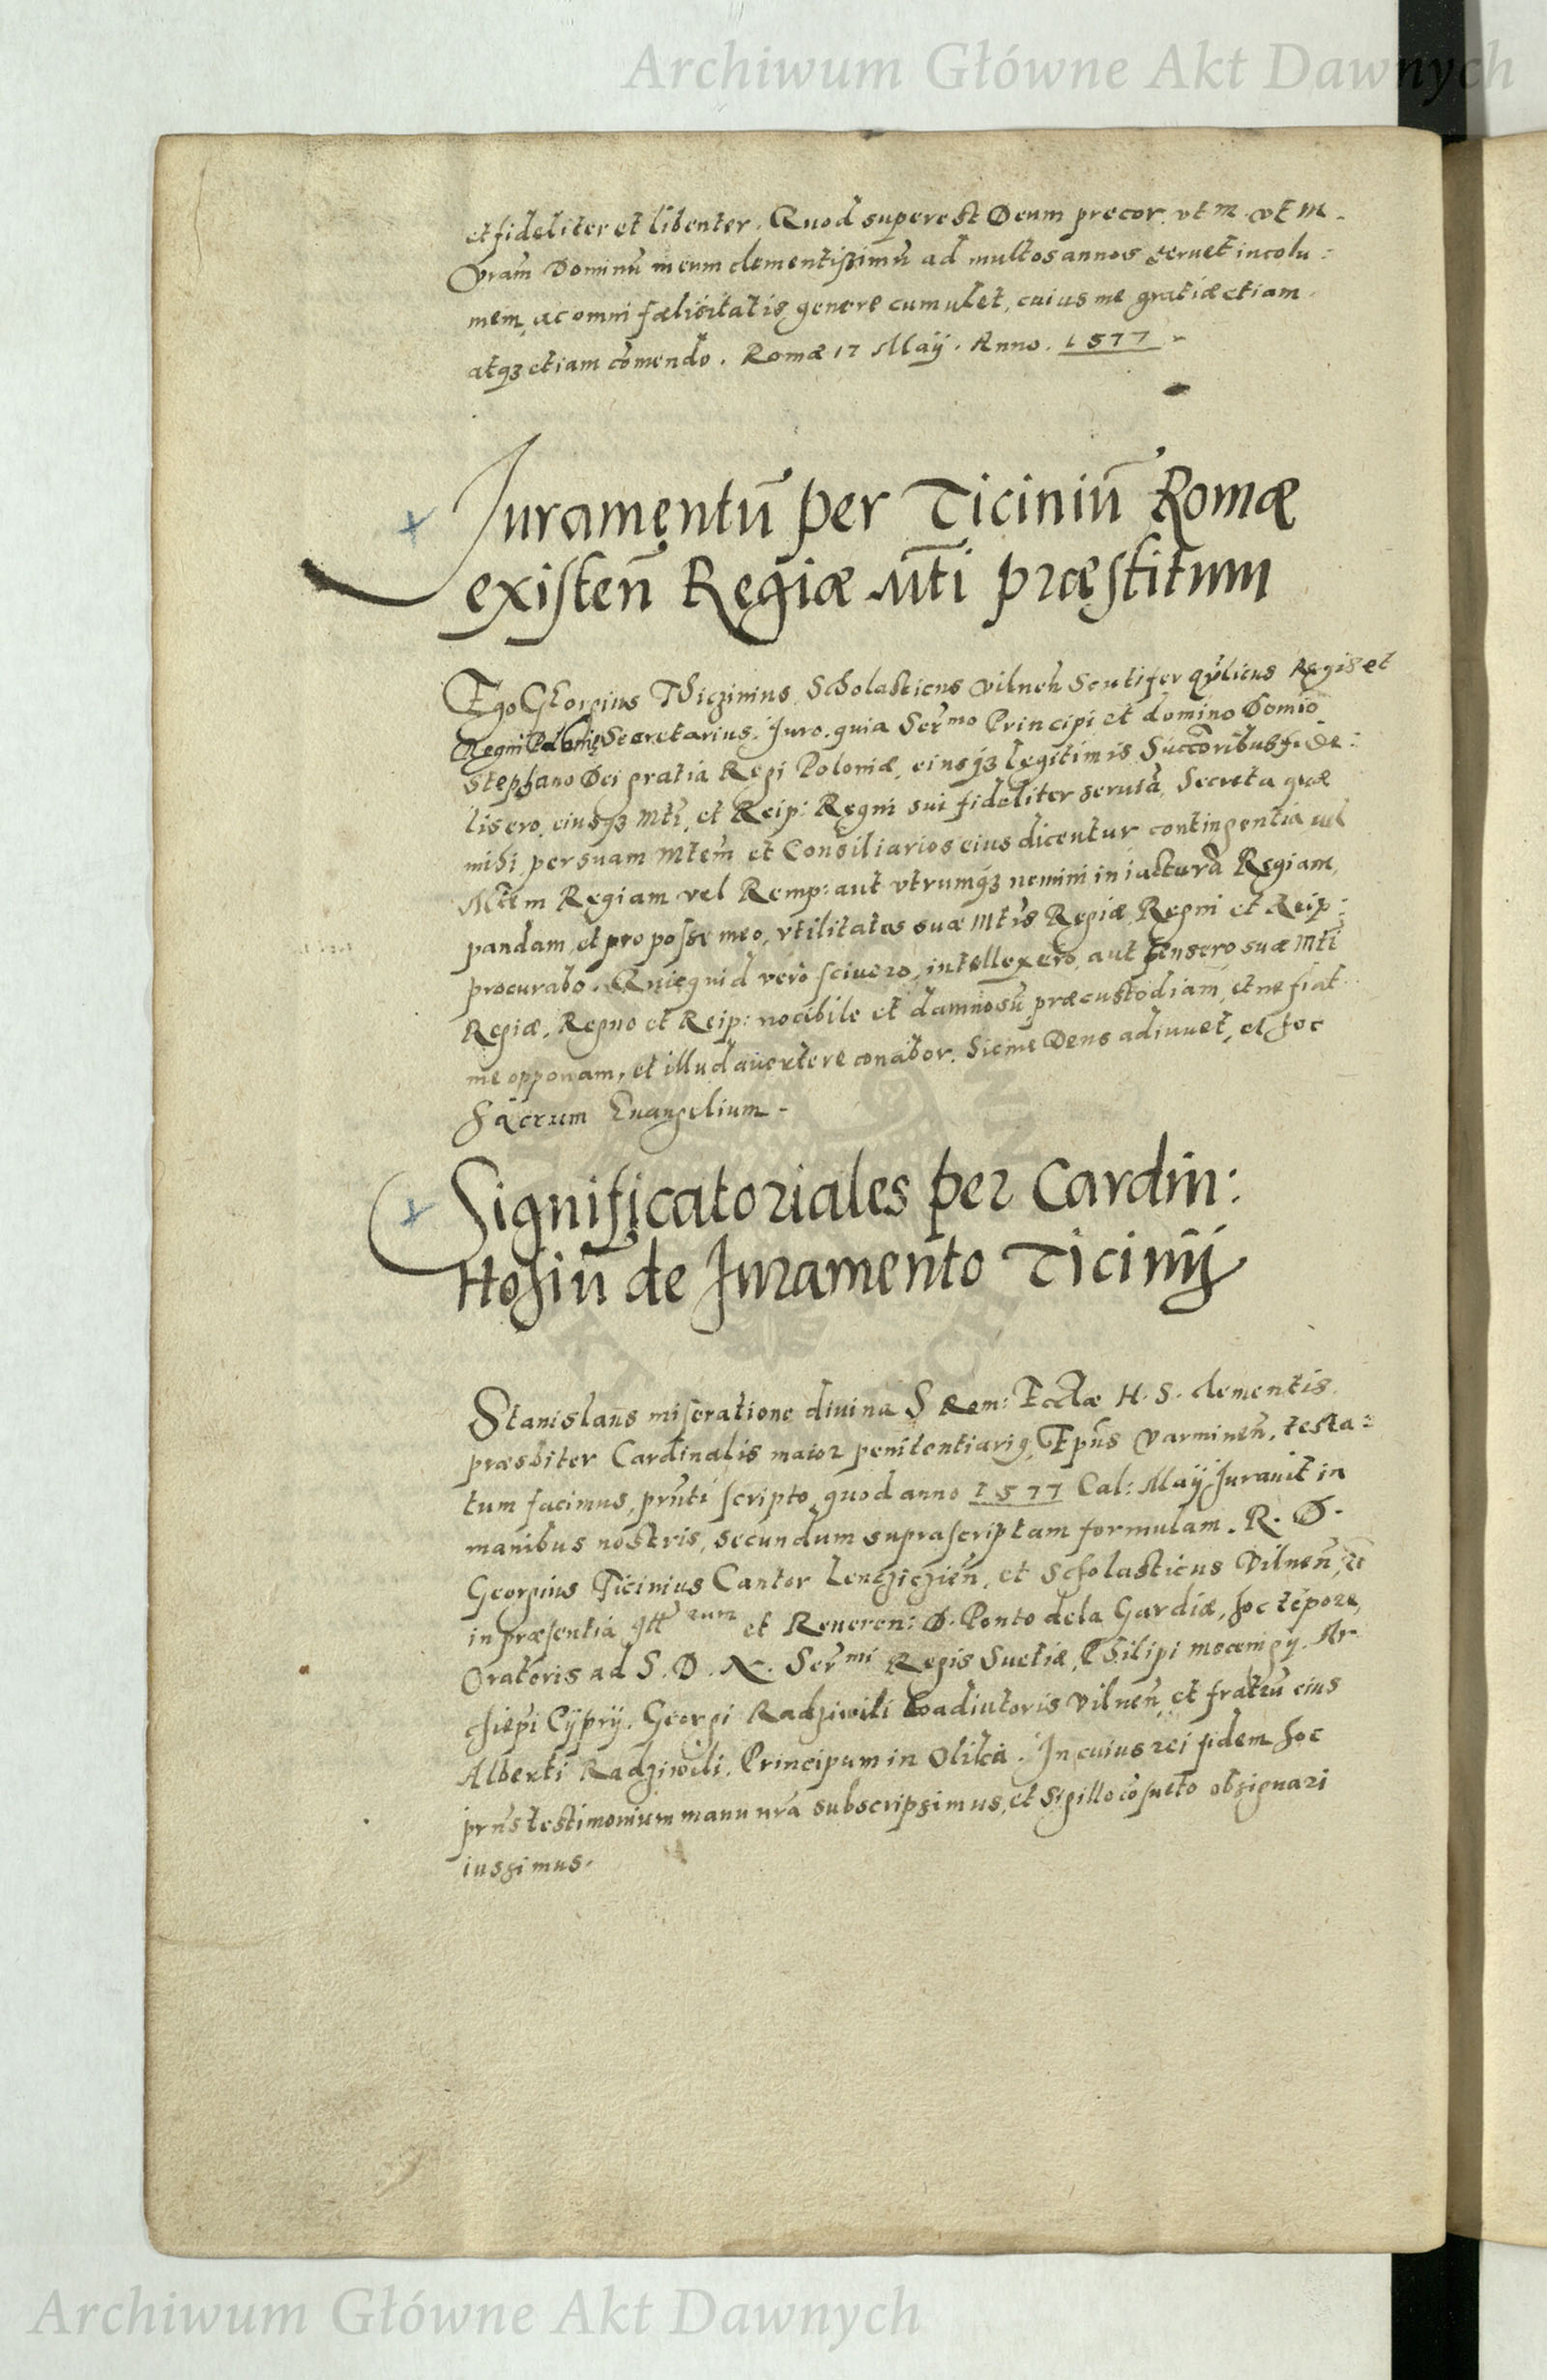 Archiwum Główne Akt Dawnych
et fideliter et libenter. Quod superest Deum precor, vt m. vt M.
Vram Dominũ meum clementissimũ ad multos annos seruet incolu:
mem, ac omni fælicitatis genere cumulet, cuius me gratiæ etiam
atqȝ etiam cõmendo. Romæ 17 Maÿ. Anno. 1577
Iuramentũ per Ticiniũ Romæ
existeñ Regiæ Mti præstitum
Ego Georgius Thiczinius, Scholasticus Vilneñ Regis et
Regni Secretarius. Iuro. quia Serᵐᵒ Principi et domino Domio
Stephano Dei gratia Regi Poloniæ, eiusqȝ legitimis Succoribus fide:
lis ero, eiusqȝ Mti, et Reip: Regni sui fideliter seruiã, Secreta quæ
mihi per suam Mtem et Consiliarios eius dicentur contingentia vel
Mtem Regiam vel Remp: aut vtrumqȝ nemini in iacturã Regiam,
pandam, et pro posse meo, vtilitates suæ Mtis Regiæ, Regni et Reip:
procurabo. Quicquid vero sciuero, intellexero, aut sensero suæ Mti
Regiæ, Regno et Reip: nocibile et damnosũ, præcustodiam, et ne fiat
me opponam, et illud auertere conabor. Sic me Deus adiuuet, et hoc
Sacrum Euangelium -
Significatoriales per Cardin:
Hosiũ de Iuramento Ticinij
Stanislaus miseratione diuina S Rom: Eccłæ H. S. clementis
præsbiter Cardinalis maior penitentiariꝯ, Epũs Varmineñ, testa:
tum facimus, prñti scripto, quod anno 1577 Cal: Maÿ Iurauit in
manibus nostris, secundum suprascriptam formulam. R. D.
Georgius Ticinius Cantor Lencziczieñ, et Scholasticus Vilneñ,
in præsentia et Reueren: D. Ponto dela Gardiæ, hoc tẽpore,
Oratoris ad S. D. N. Serᵐⁱ Regis Suetiæ, Philipi mocenigÿ. Ar
chiepi Cÿprÿ. Georgi Radziwili Coadiutoris Vilneñ, et fratrũ eius
Alberti Radziwili, Principum in Olika. In cuius rei fidem hoc
prñs testimonium manu nrã subscripsimus, et Sigillo cõsueto obsignari
iussimus.
Archiwum Główne Akt Dawnych